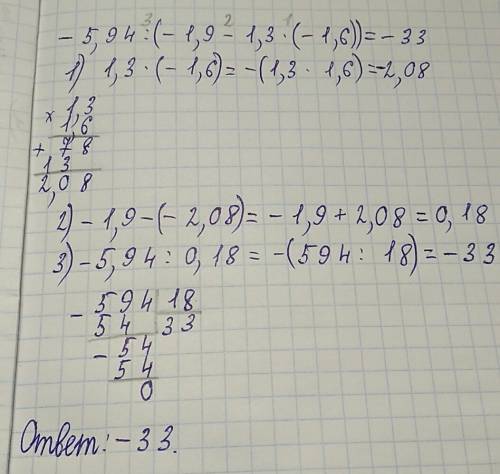 3 2 1
- 5,94 : (- 1,9 - 1,3 · (- 1,6)) = - 33
1) 1,3 · (- 1,6) = -(1,3 · 1,6) = -2,08
× 1,3
1,6
+ 78
13
2,08
2) - 1,9 - (- 2,08) = - 1,9 + 2,08 = 0,18
3) - 5,94 : 0,18 = -(594 : 18) = - 33
- 594 18
54 33
- 54
54
0
Ответ: - 33.